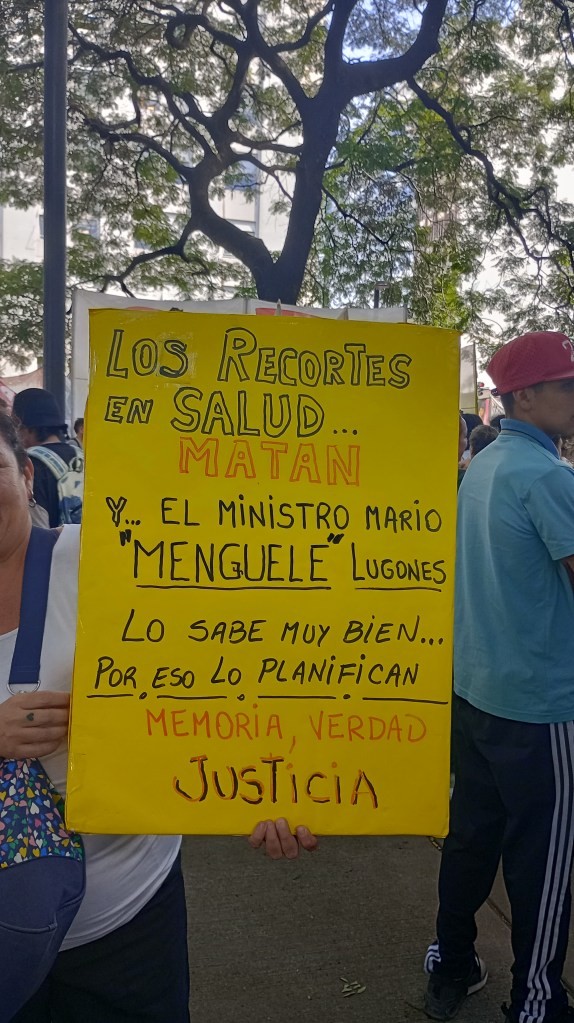 LOS RECORTES
EN SALUD...
MATAN
Y... EL MINISTRO MARIO
"MENGUELE" LUGONES
LO SABE MUY BIEN...
POR ESO LO PLANIFICAN
MEMORIA, VERDAD
JUSTICIA